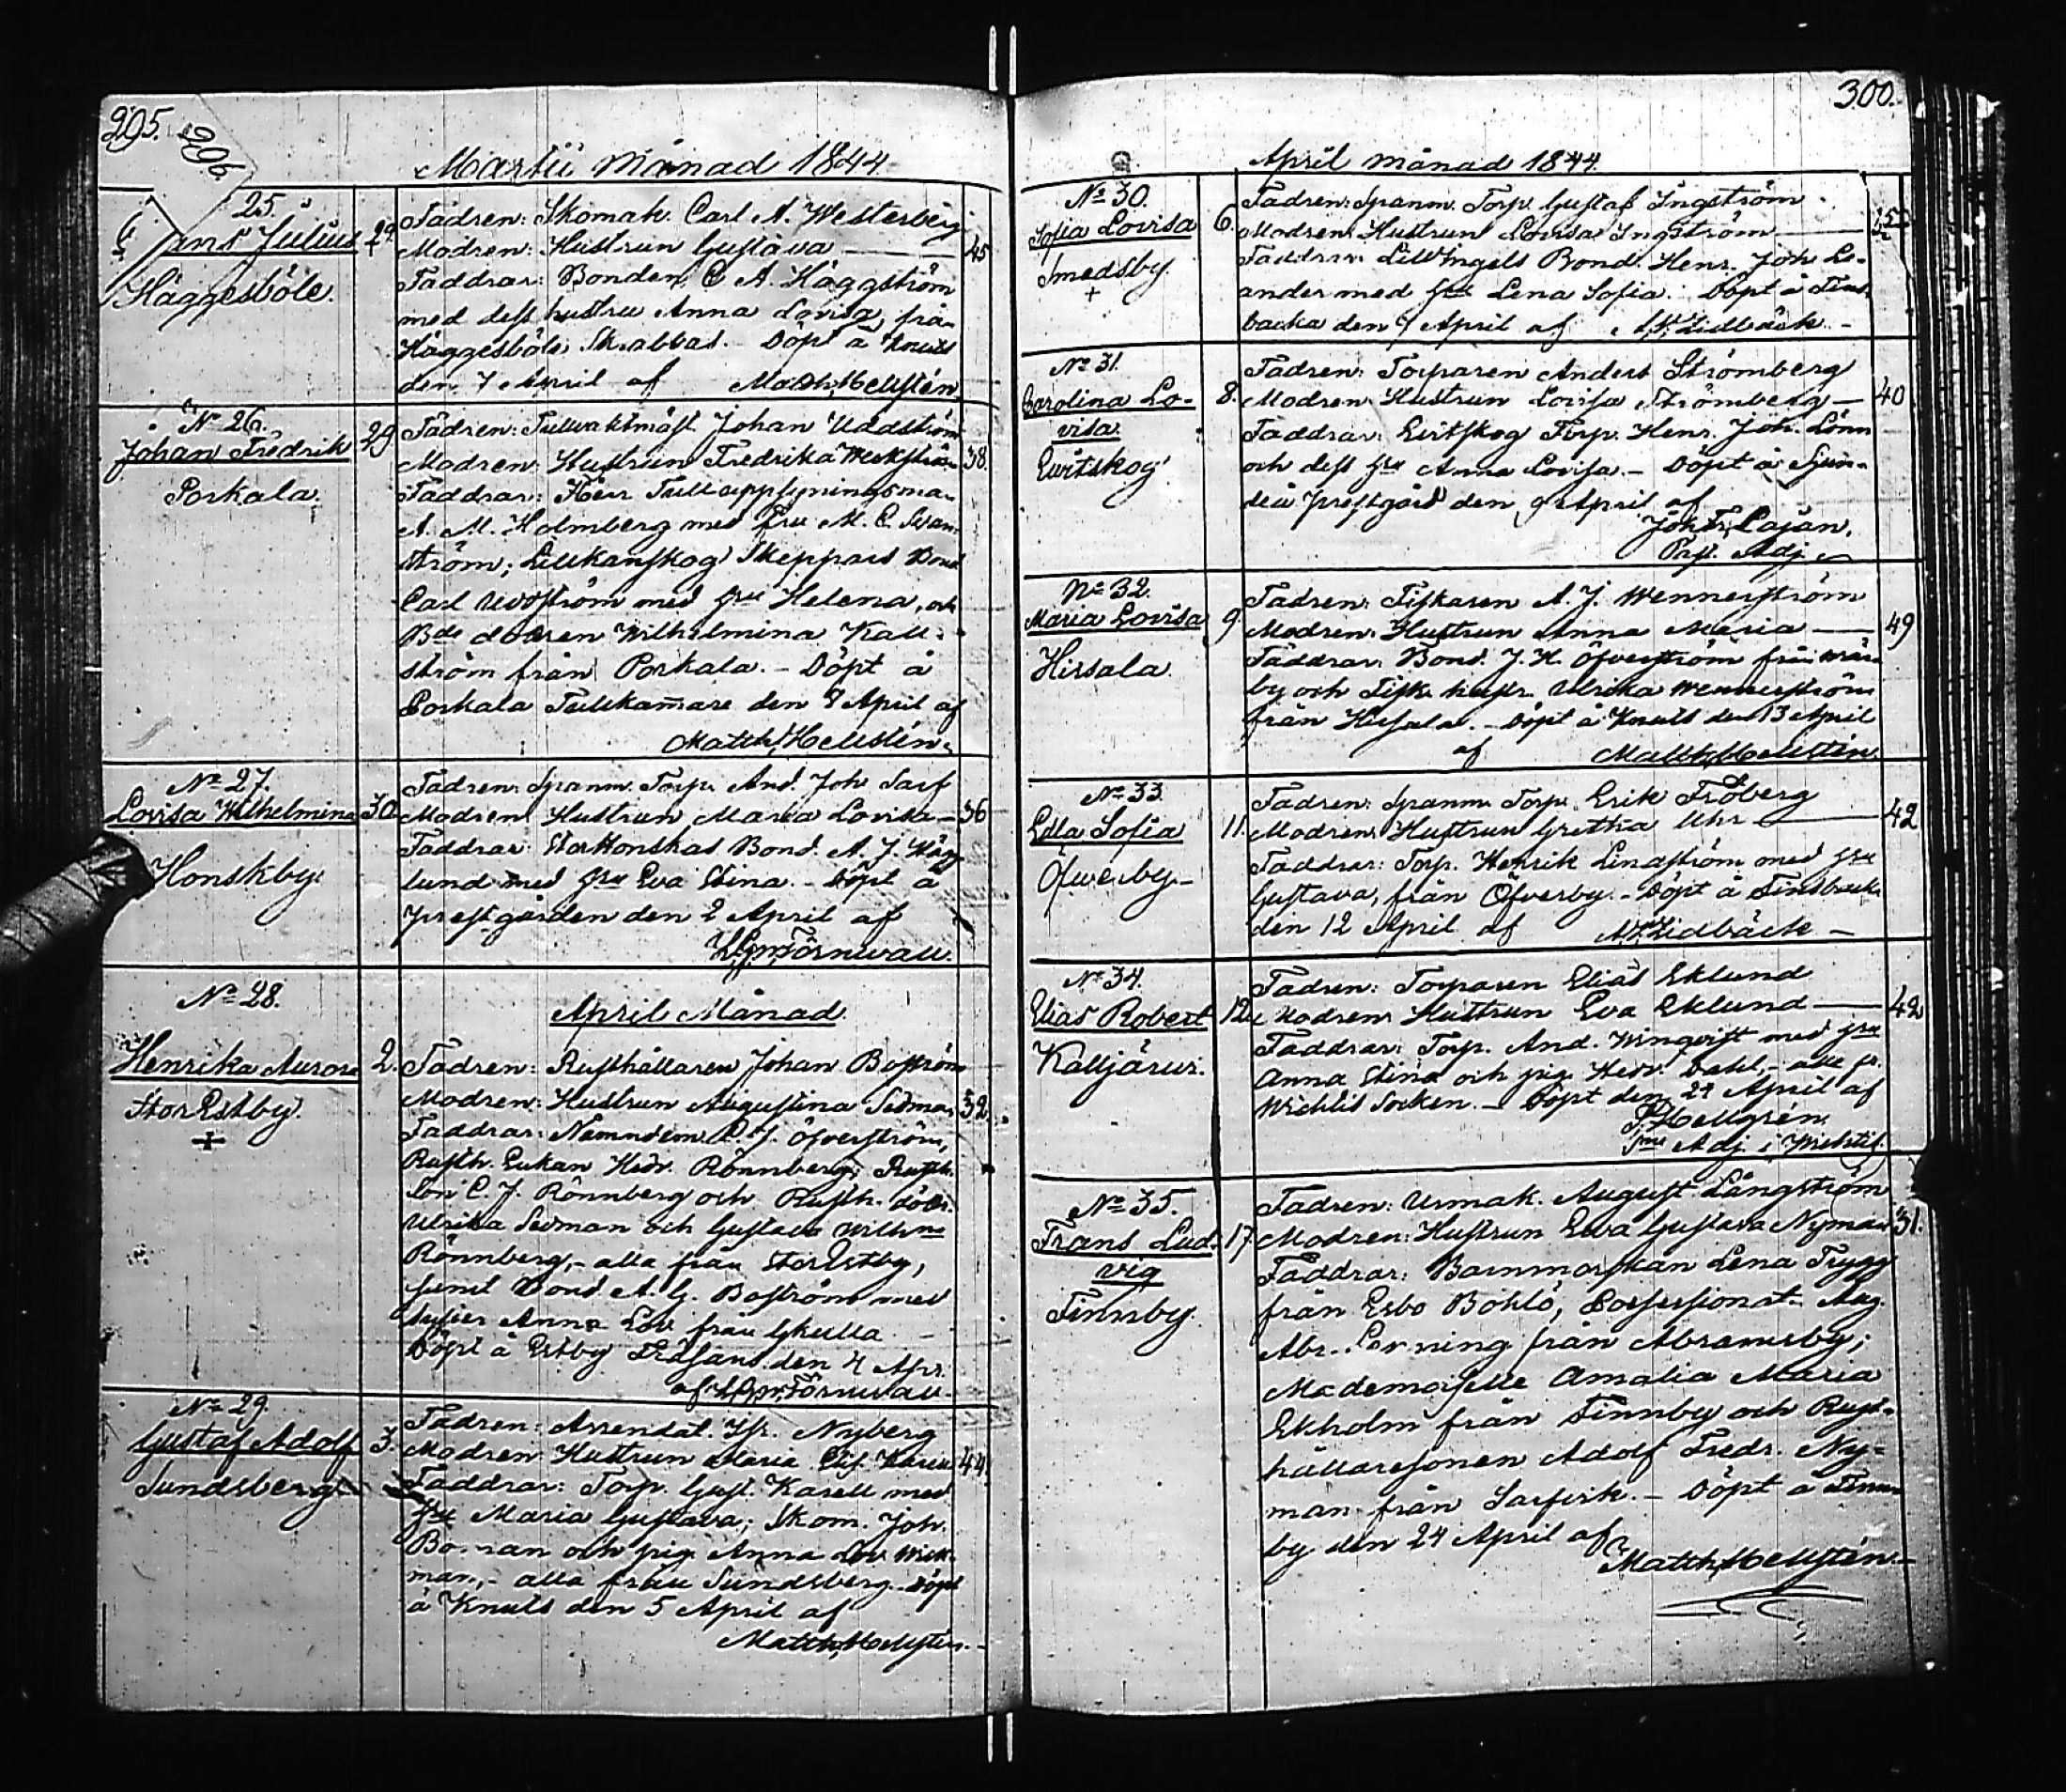 295.
296.
Martii Månad 1844.
25.
Jans Julius
Häggesböle.
29.
Fadren: Skomak. Carl A. Westerberg
Modren: Hustrun Gustava —
45
Faddrar: Bonden C A. Häggström
med dess hustru Anna Lovisa, från
Häggesböle, Skabbas. – Döpt å Knuts
den 7 April af Matth. Hellstén.
No 26.
Johan Fredrik
Porkala.
29
Fadren: Tullvaktmäst. Johan Uddström
Modren: Hustrun Fredrika
38.
Faddrar: Herr Tulluppsyningsma-
A. M. Holmberg med fru M. C. Svan-
ström; Lillkanskog Skeppars Bond
Carl Uddström med hru Helena, och
Bde dottren Wilhelmina Kall-
ström från Porkala. – Döpt å
Porkala Tullkam̅are den 8 April af
Matth. Hellstén.
No 27.
Lovisa Wilhelmina
Honskby.
30.
Fadren: Spanm. Torp. And. Joh Sarf
Modren Hustrun Maria Lovisa –
36
Faddrar: StorHonskas Bond. A. J. Hägg
lund med hru Eva Stina. – Döpt å
prestgården den 2 April af
Törnwall.
No 28.
April Månad
Henrika Aurora
StorEstby.
+
2.
Fadren: Rusthållaren Johan Boström
Modren: Hustrun Augustina Sedman
32.
Faddrar: Nämndem. C. J. Öfverström,
Rusth. Enkan Hedv. Rönnberg; Rusth.
Son C. J. Rönnberg och Rusth. döttr.
Ulrika Sedman och Gustava Wilhma
Rönnberg, – alla från StorEstby,
samt Bond. A. G. Boström med
syster Anna Lov. från
Döpt å Estby den 4 Apr.
af Törnwall
No 29.
Gustaf Adolf
Sundsberg
3.
Fadren: Arrendat. Nyberg
Modren Hustrun Maria
44.
Faddrar: Torp. Gust. Karell med
hru Maria Gustava; Skom. Joh.
Boman och pig. Anna Lov. Wick-
man, – alla från Sundsberg. Döpt
å Knuts den 5 April af
Matth. Hellstén. –
300.
April Månad 1844.
No 30.
Sofia Lovisa
Smedsby.
+
6.
Fadren: Spanm. Torp. Gustaf Ingström
Modren: Hustrun Lovisa Ingström
Faddrar: LillIngels Bond. Henr. Joh. Le-
ander med hru Lena Sofia. Döpt å Fins-
backa den 9 April af Lidbäck –
No 31.
Carolina Lo-
visa.
Evitskog.
8.
Fadren: Torparen Anders Strömberg
Modren: Hustrun Lovisa Strömberg –
40
Faddrar: Evitskog Torp. Henr. Joh. Lönn
och dess hru Anna Lovisa. – Döpt å Sjun-
deå prestgård den 9 April af
Joh. Fr. Lajan,
Past. Adj.
No 32.
Maria Lovisa
Hirsala.
9.
Fadren: Fiskaren A. J. Wennerström
Modren: Hustrun Anna Maria —
49
Faddrar: Bond. J. H. Öfverström från
by och Fisk. hustr. Ulrika Wennerström
från Hirsala. – Döpt å Knuts den 13 April
af Matth. Hellstén.
No 33.
Edla Sofia
Öfverby –
11.
Fadren: Spanm. Torp. Erik Fröberg
Modren: Hustrun Gretha Uhr —
42
Faddrar: Torp. Henrik Lindström med hru
Gustava, från Öfverby. – Döpt å Finsbacka
den 12 April af Lidbäck –
No 34.
Elias Robert
Kalljärwi.
12.
Fadren: Torparen Elias Eklund
Modren: Hustrun Eva Eklund —
42
Faddrar: Torp. And. Winqvist med hru
Anna Stina och pig. Hedv. Dahl, – alla fr.
Wichtis Socken. – Döpt den 21 April af
Hellgrén.
Adj. i Wichtis.
No 35.
Frans Lud-
vig
Finnsby.
17.
Fadren: Urmak. August Långström
Modren: Hustrun Eva Gustava Nyman
31.
Faddrar: Barnmorskan Lena Trygg
från Esbo Bohlö, Possessionat. Aug.
Abr. Lerning från Abramsby;
Mademoiselle Amalia Maria
Ekholm från Finnsby och Rust-
hållaresonen Adolf Fredr. Ny-
man från Sarfvik. – Döpt å Finns-
by den 24 April af
Matth. Hellstén –